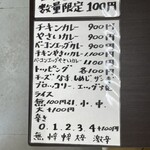 数量限定100円
チキンカレー 900円
やさいカレー 900円
ベーコンエッグカレー 900円
チキンやさいカレー 1100円
ベーコンエッグやさいカレー 1100円
トッピング 各100円
チーズ なす しめじ ザーサイ
ブロッコリー エッグ
ライス
無 100円引 小 中
大+100円
辛さ
0.1.2.3.4+100円
無 激辛